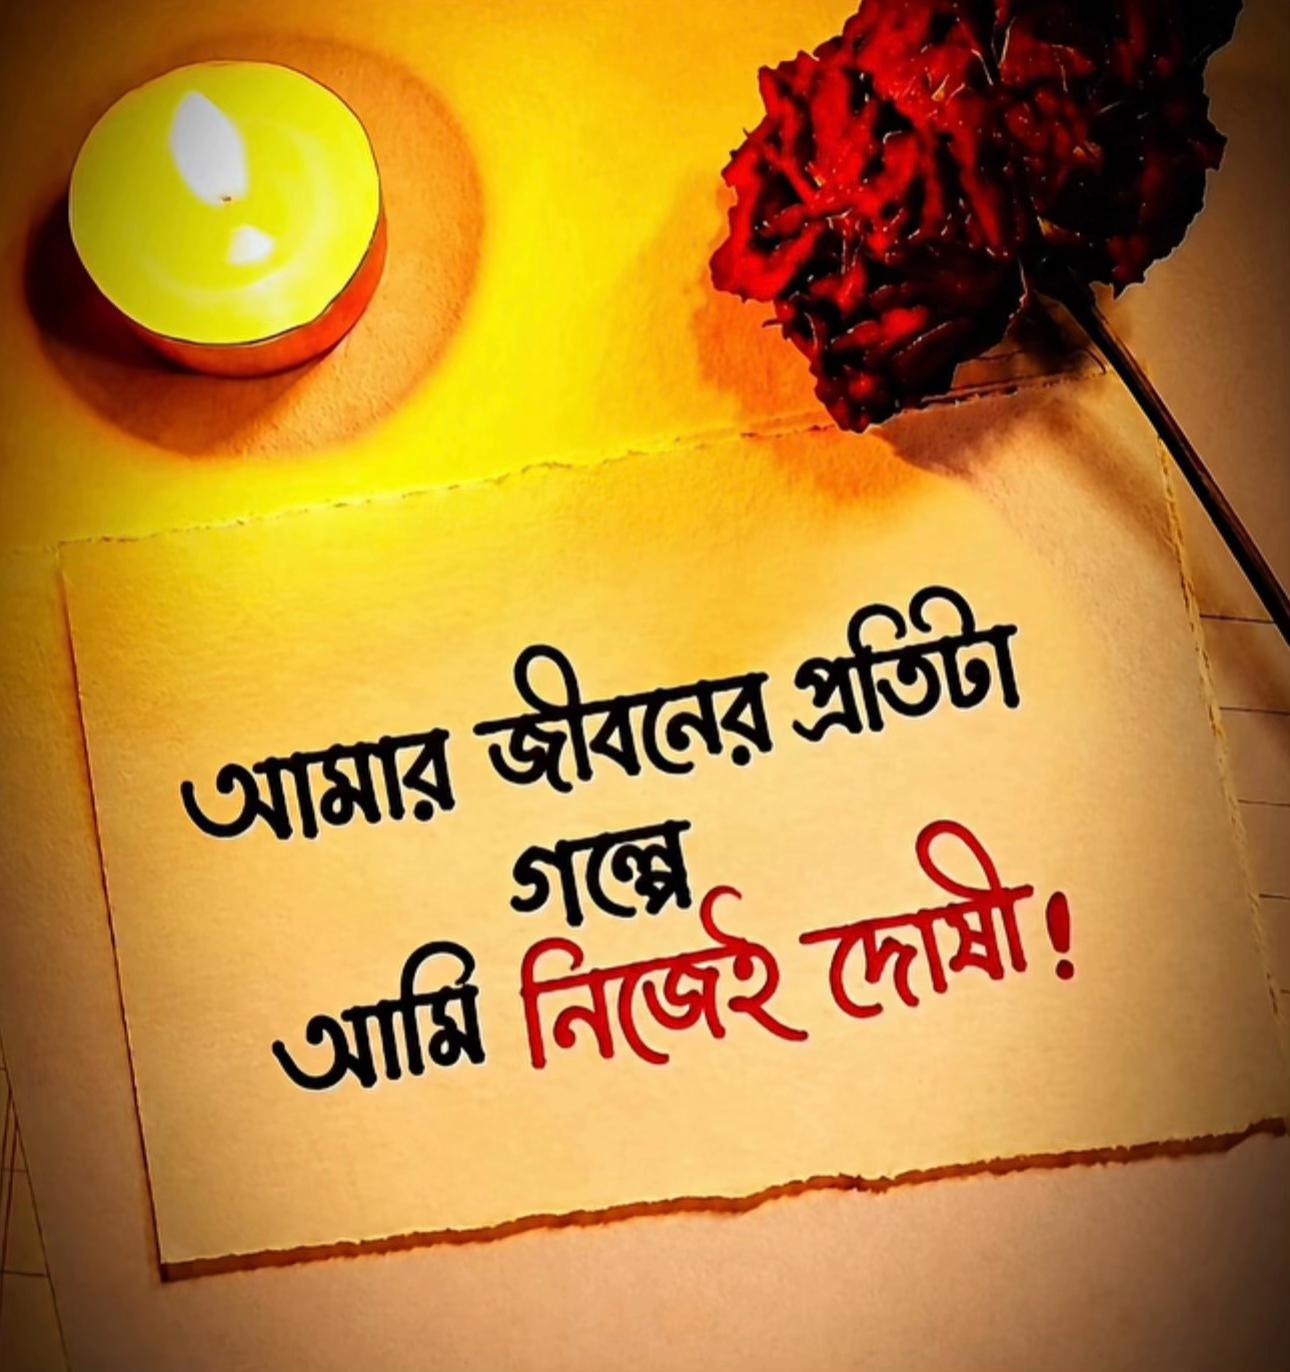 আমার জীবনের প্রতিটা
গল্পে
আমি নিজেই দোষী!